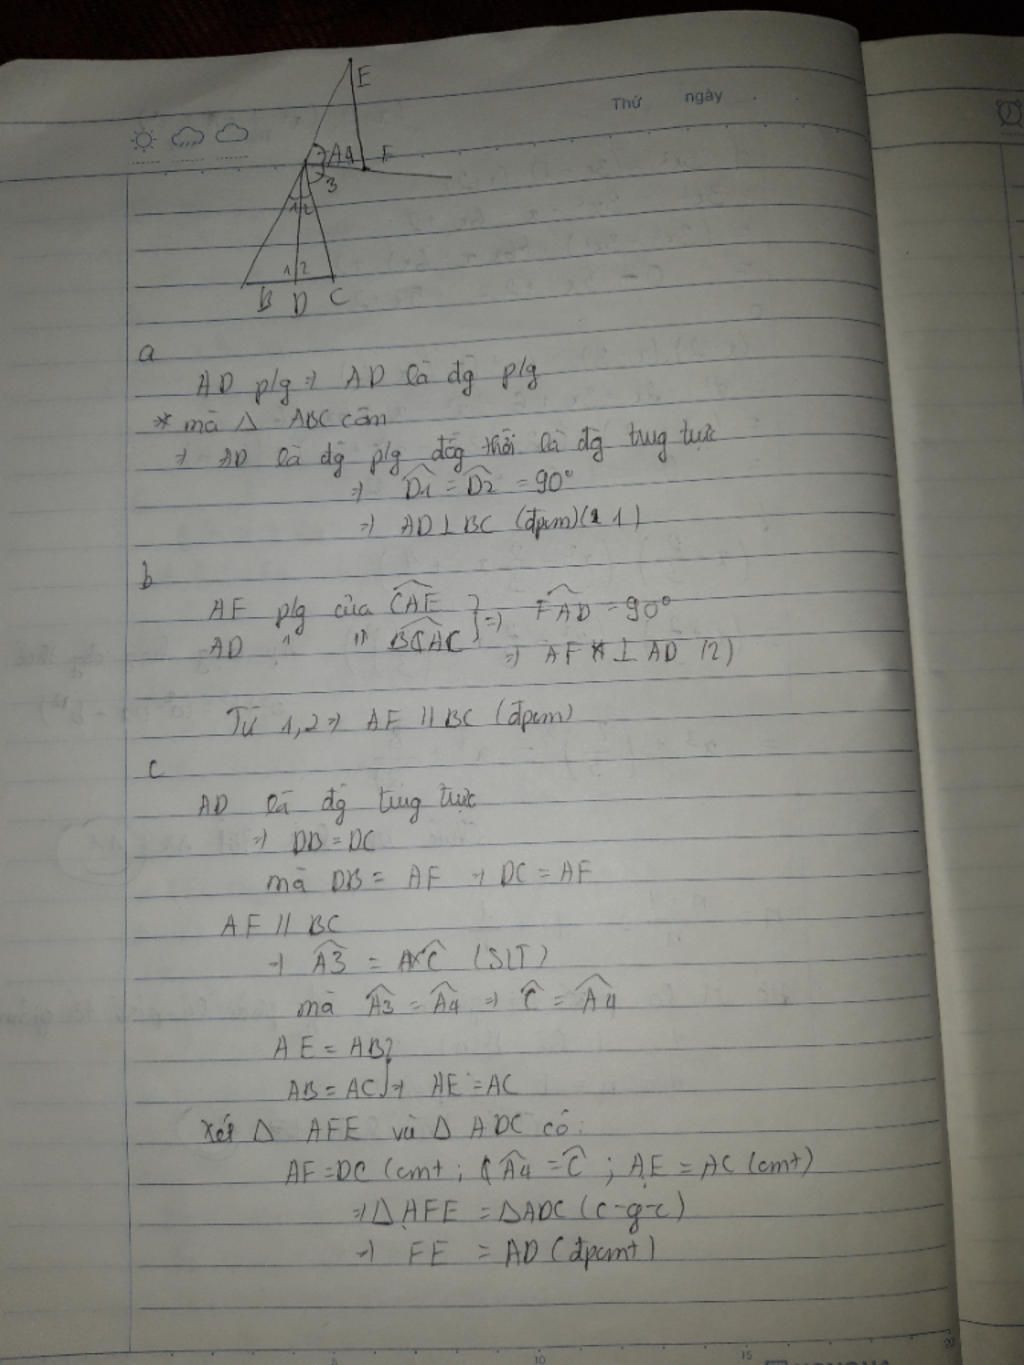 E
Thứ ngày
A 4 F
3
1 2
1 2
B D C
a
AD p/g => AD là đg p/g
* mà Δ ABC cân
=> AD là đg p/g đồng thời là đg trug trực
=> D1 = D2 = 90°
=> AD ⊥ BC (đpcm) (1)
b
AF p/g của CAE } => FAD = 90°
AD " " BAC => AF ⊥ AD (2)
Từ 1,2 => AF // BC (đpcm)
c
AD là đg trug trực
=> DB = DC
mà DB = AF => DC = AF
AF // BC
=> A3 = C (SLT)
mà A3 = A4 => C = A4
AE = AB }
AB = AC } => AE = AC
Xét Δ AFE và Δ ADC có:
AF = DC (cmt ; A4 = C ; AE = AC (cmt)
=> Δ AFE = Δ ADC (c-g-c)
=> FE = AD (đpcmt)
10
15
20